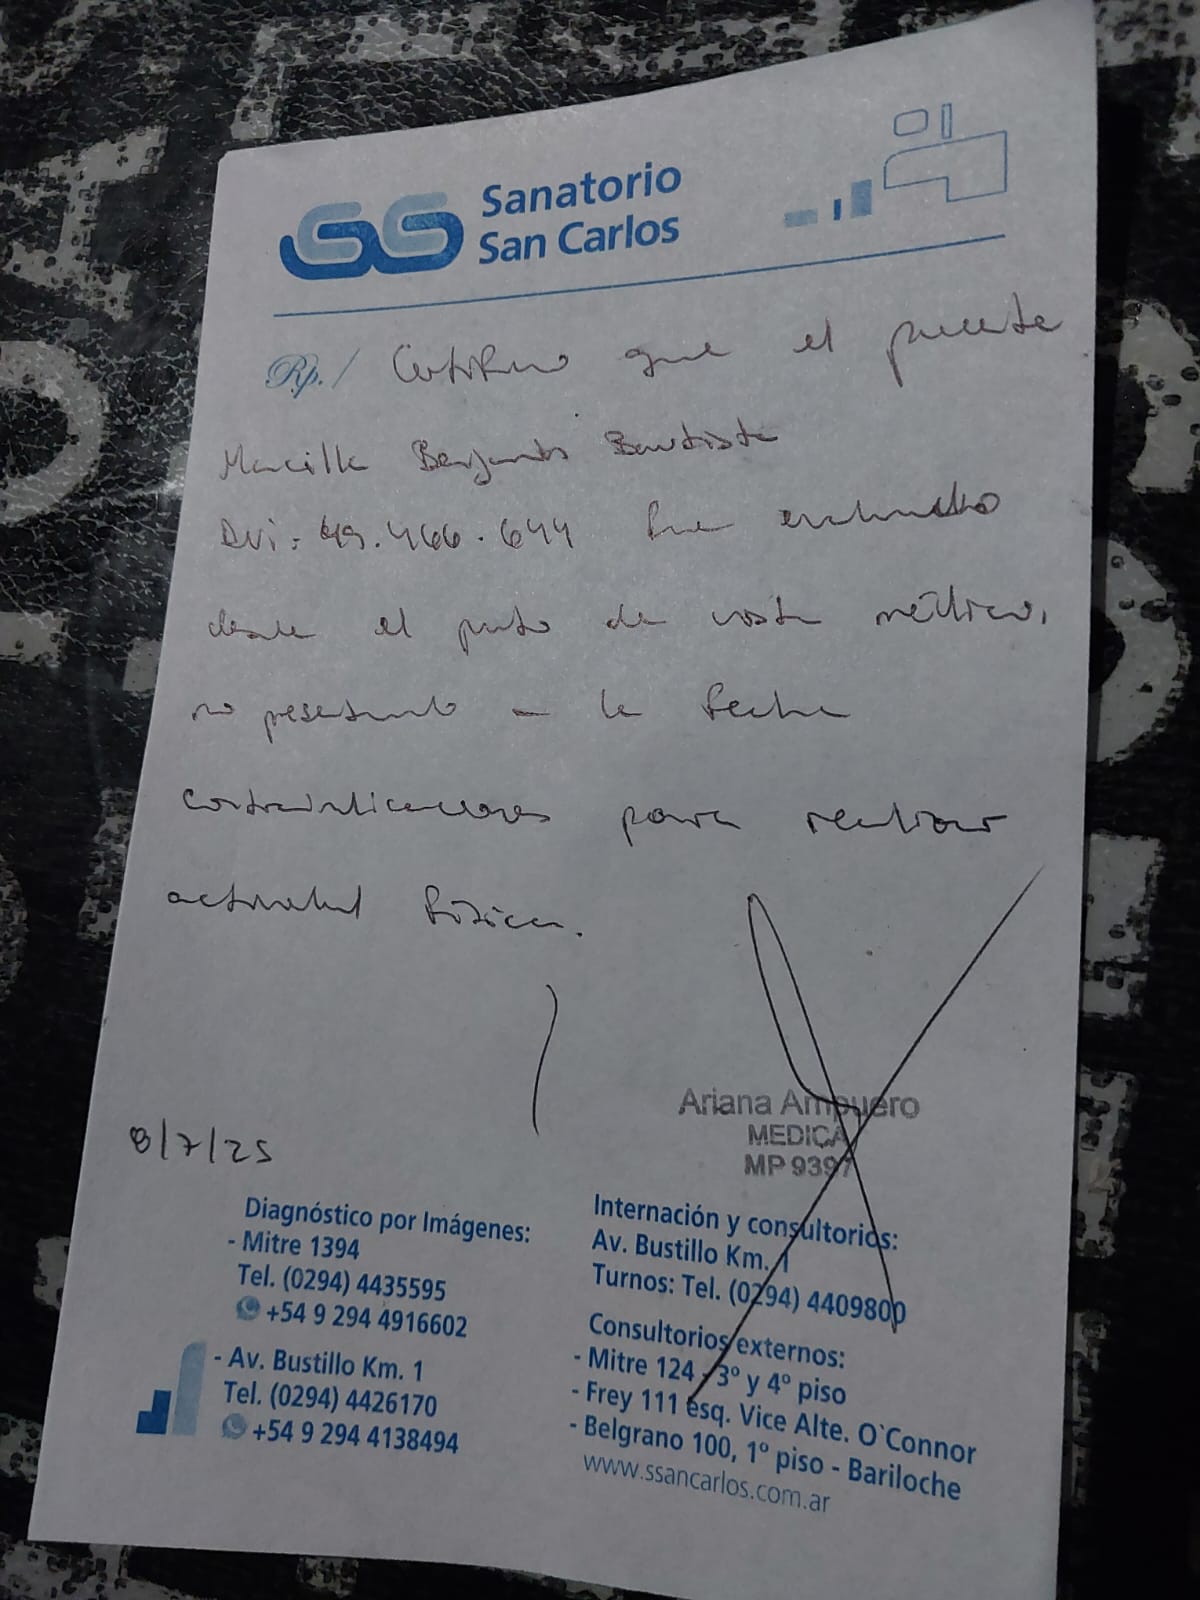 SS Sanatorio
San Carlos
Rp./ Certifico que el presente
Mancilla Benjamín Bautista
DNI: 49.466.644 fue evaluado
desde el punto de vista médico,
no presentando a la fecha
contraindicaciones para realizar
actividad física.
8/7/25
Ariana Ampuero
MEDICA
MP 9397
Diagnóstico por Imágenes:
- Mitre 1394
Tel. (0294) 4435595
+54 9 294 4916602
- Av. Bustillo Km. 1
Tel. (0294) 4426170
+54 9 294 4138494
Internación y consultorios:
Av. Bustillo Km. 1
Turnos: Tel. (0294) 4409800
Consultorios externos:
- Mitre 124 - 3º y 4º piso
- Frey 111 esq. Vice Alte. O`Connor
- Belgrano 100, 1º piso - Bariloche
www.ssancarlos.com.ar